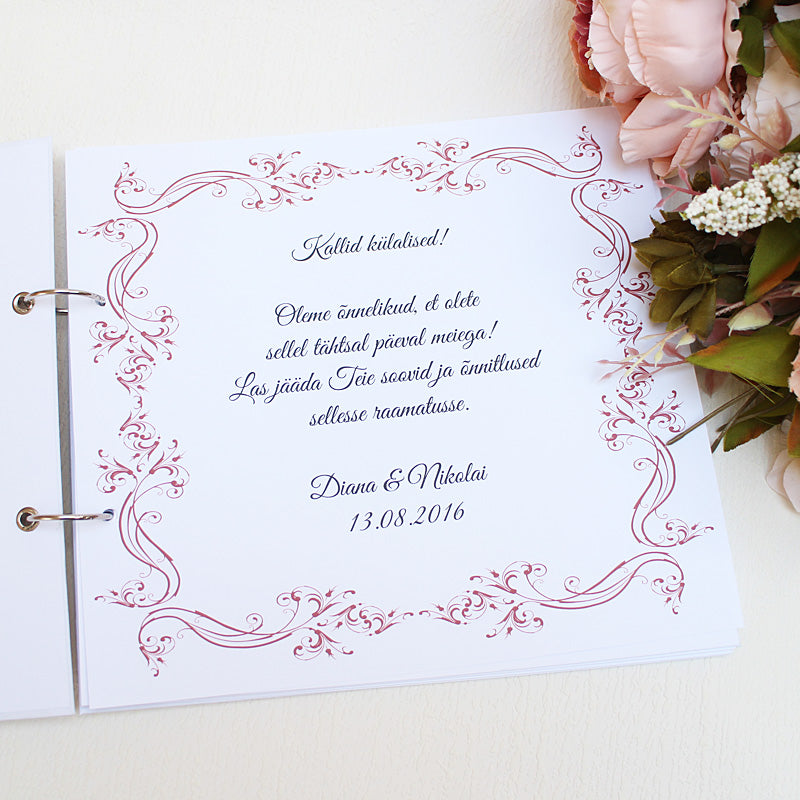 Kallid külalised!
Oleme õnnelikud, et olete
sellel tähtsal päeval meiega!
Las jääda Teie soovid ja õnnitlused
sellesse raamatusse.
Diana & Nikolai
13.08.2016